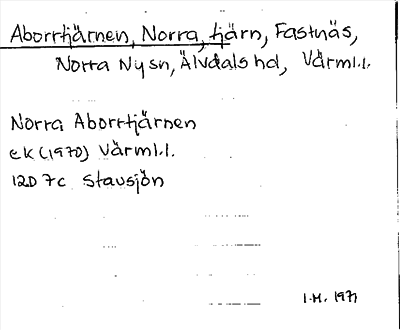 Aborrtjärnen, Norra, tjärn, Fastnäs,
Norra Ny sn, Älvdals hd, Värml.l.
Norra Aborrtjärnen
ek (1970) Värml.l.
12D 7c Stausjön
I.H. 1971